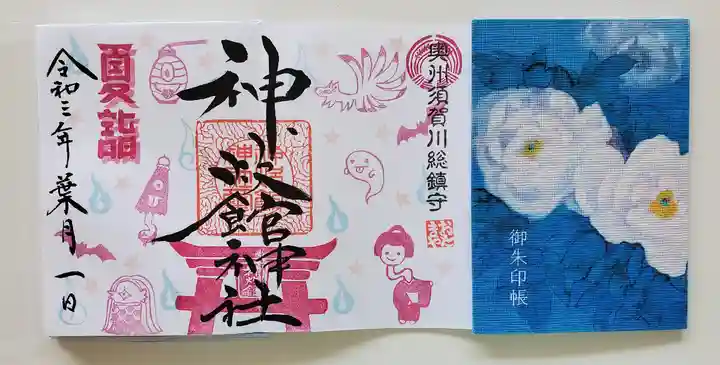 御朱印帳
奥州須賀川総鎮守
神炊館神社
夏詣
令和三年葉月一日